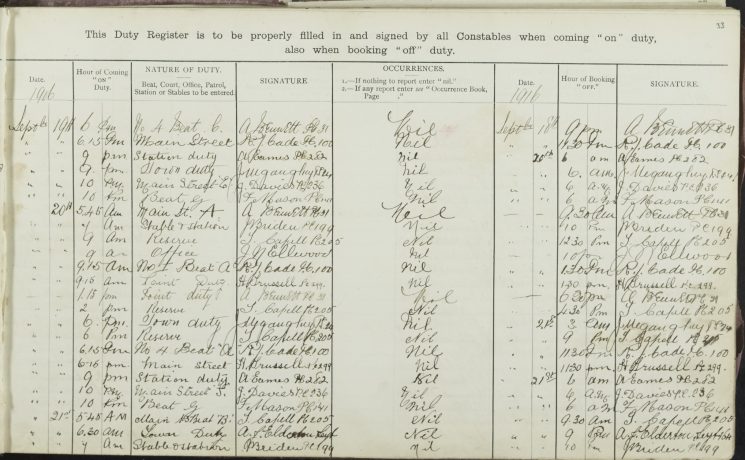 33
This Duty Register is to be properly filled in and signed by all Constables when coming "on" duty,
also when booking "off" duty.
Date. Hour of Coming "ON" Duty. NATURE OF DUTY. Beat, Court, Office, Patrol, Station or Stables to be entered. SIGNATURE OCCURRENCES. 1.—If nothing to report enter "nil." 2.—If any report enter see "Occurrence Book, Page ." Date. Hour of Booking "OFF." SIGNATURE.
1916 1916
6 pm No 4 Beat C. A Bennett Pc 31 Nil 9 pm A Bennett Pc 31
" " 6.15 Pm Main Street R. J. Cade Pc 100 Nil 11.30 Pm R. J. Cade Pc 100
" " 9 pm Station duty A Eames Pc 262 Nil " 20th 6 am A Eames Pc 262
" " 9 pm Town duty Nil " " 6 am
" " 10 Pm Main Street J. Davies Pc 236 Nil " " 6 a.m J. Davies Pc 236
" " 10 Pm Beat G F. Mason Pc 141 Nil " " 6 a.m F. Mason Pc 141
" 20th 5.45 Am Main St. A. A Bennett Pc 31 Nil 9.30 am A Bennett Pc 31
" " 7 Am Stable & station Breden Pc 199 Nil " " 10 Pm Breden Pc 199
" " 9 Am Reserve T. Capell Pc 205 Nil " " 12.30 Pm T. Capell Pc 205
" " 9 am Office Ellwood Nil " " Ellwood
" " 9.15 Am No 1 Beat A R. J. Cade Pc 100 Nil " " 1.30 Pm R. J. Cade Pc 100
" " 9.15 am Point Duty H. Brussell Pc 299 Nil " " 1.30 pm H. Brussell Pc 299
" " 1.15 pm Point duty A Bennett Pc 31 Nil 6.30 pm A Bennett Pc 31
" " 2 pm Reserve T. Capell Pc 205 Nil 4.30 Pm T. Capell Pc 205
" " 6 Pm Town duty Nil " 21st 3 am
" " 6 Pm Reserve T. Capell Pc 205 Nil " 9 Pm T. Capell Pc 205
" " 6.15 Pm No 4 Beat A R. J. Cade Pc 100 Nil " " 11.30 Pm R. J. Cade Pc 100
" " 6.15 pm Main street H. Brussell Pc 299 Nil " " 11.30 pm H. Brussell Pc 299
" " 9 pm Station duty A Eames Pc 262 Nil " 21st 6 am A Eames Pc 262
" " 10 Pm Main Street J. Davies Pc 236 Nil " " 6 a.m J. Davies Pc 236
" " 10 Pm Beat G F. Mason Pc 141 Nil " " 6 a.m F. Mason Pc 141
" 21st 5.45 AM Main Street B. T. Capell Pc 205 Nil " " 9.30 am T. Capell Pc 205
" " 6.30 am Town Duty Nil " " 9 Pm
" " 7 Am Stable & station Breden Pc 199 nil " " 10 Pm Breden Pc 199